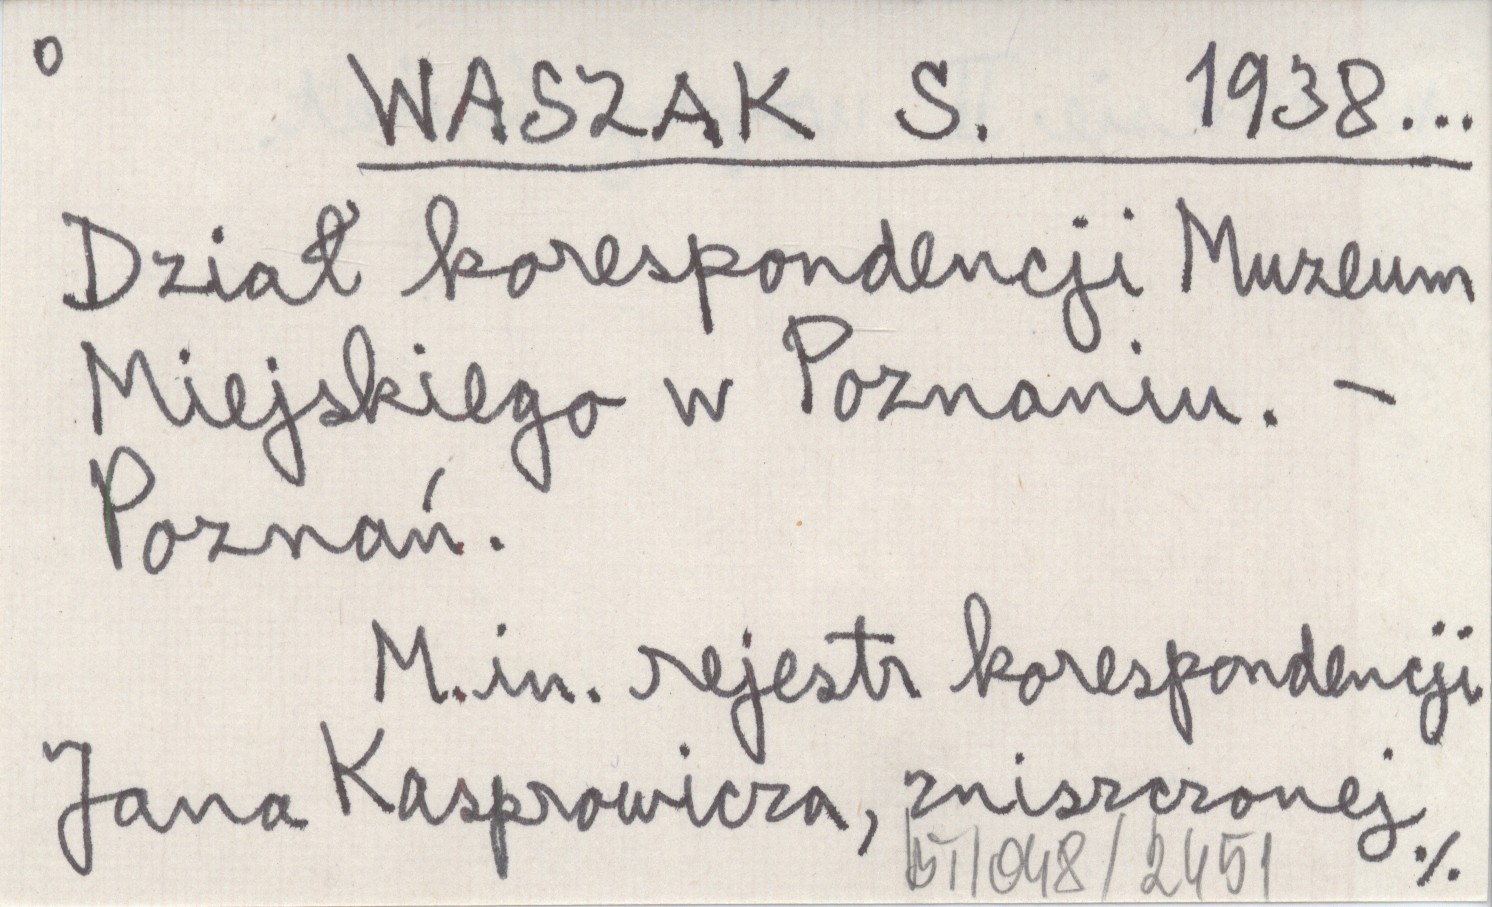 o WASZAK S. 1938...
Dział korespondencji Muzeum
Miejskiego w Poznaniu. –
Poznań.
M.in. rejestr korespondencji
Jana Kasprowicza, zniszczonej
./.
/048/2451